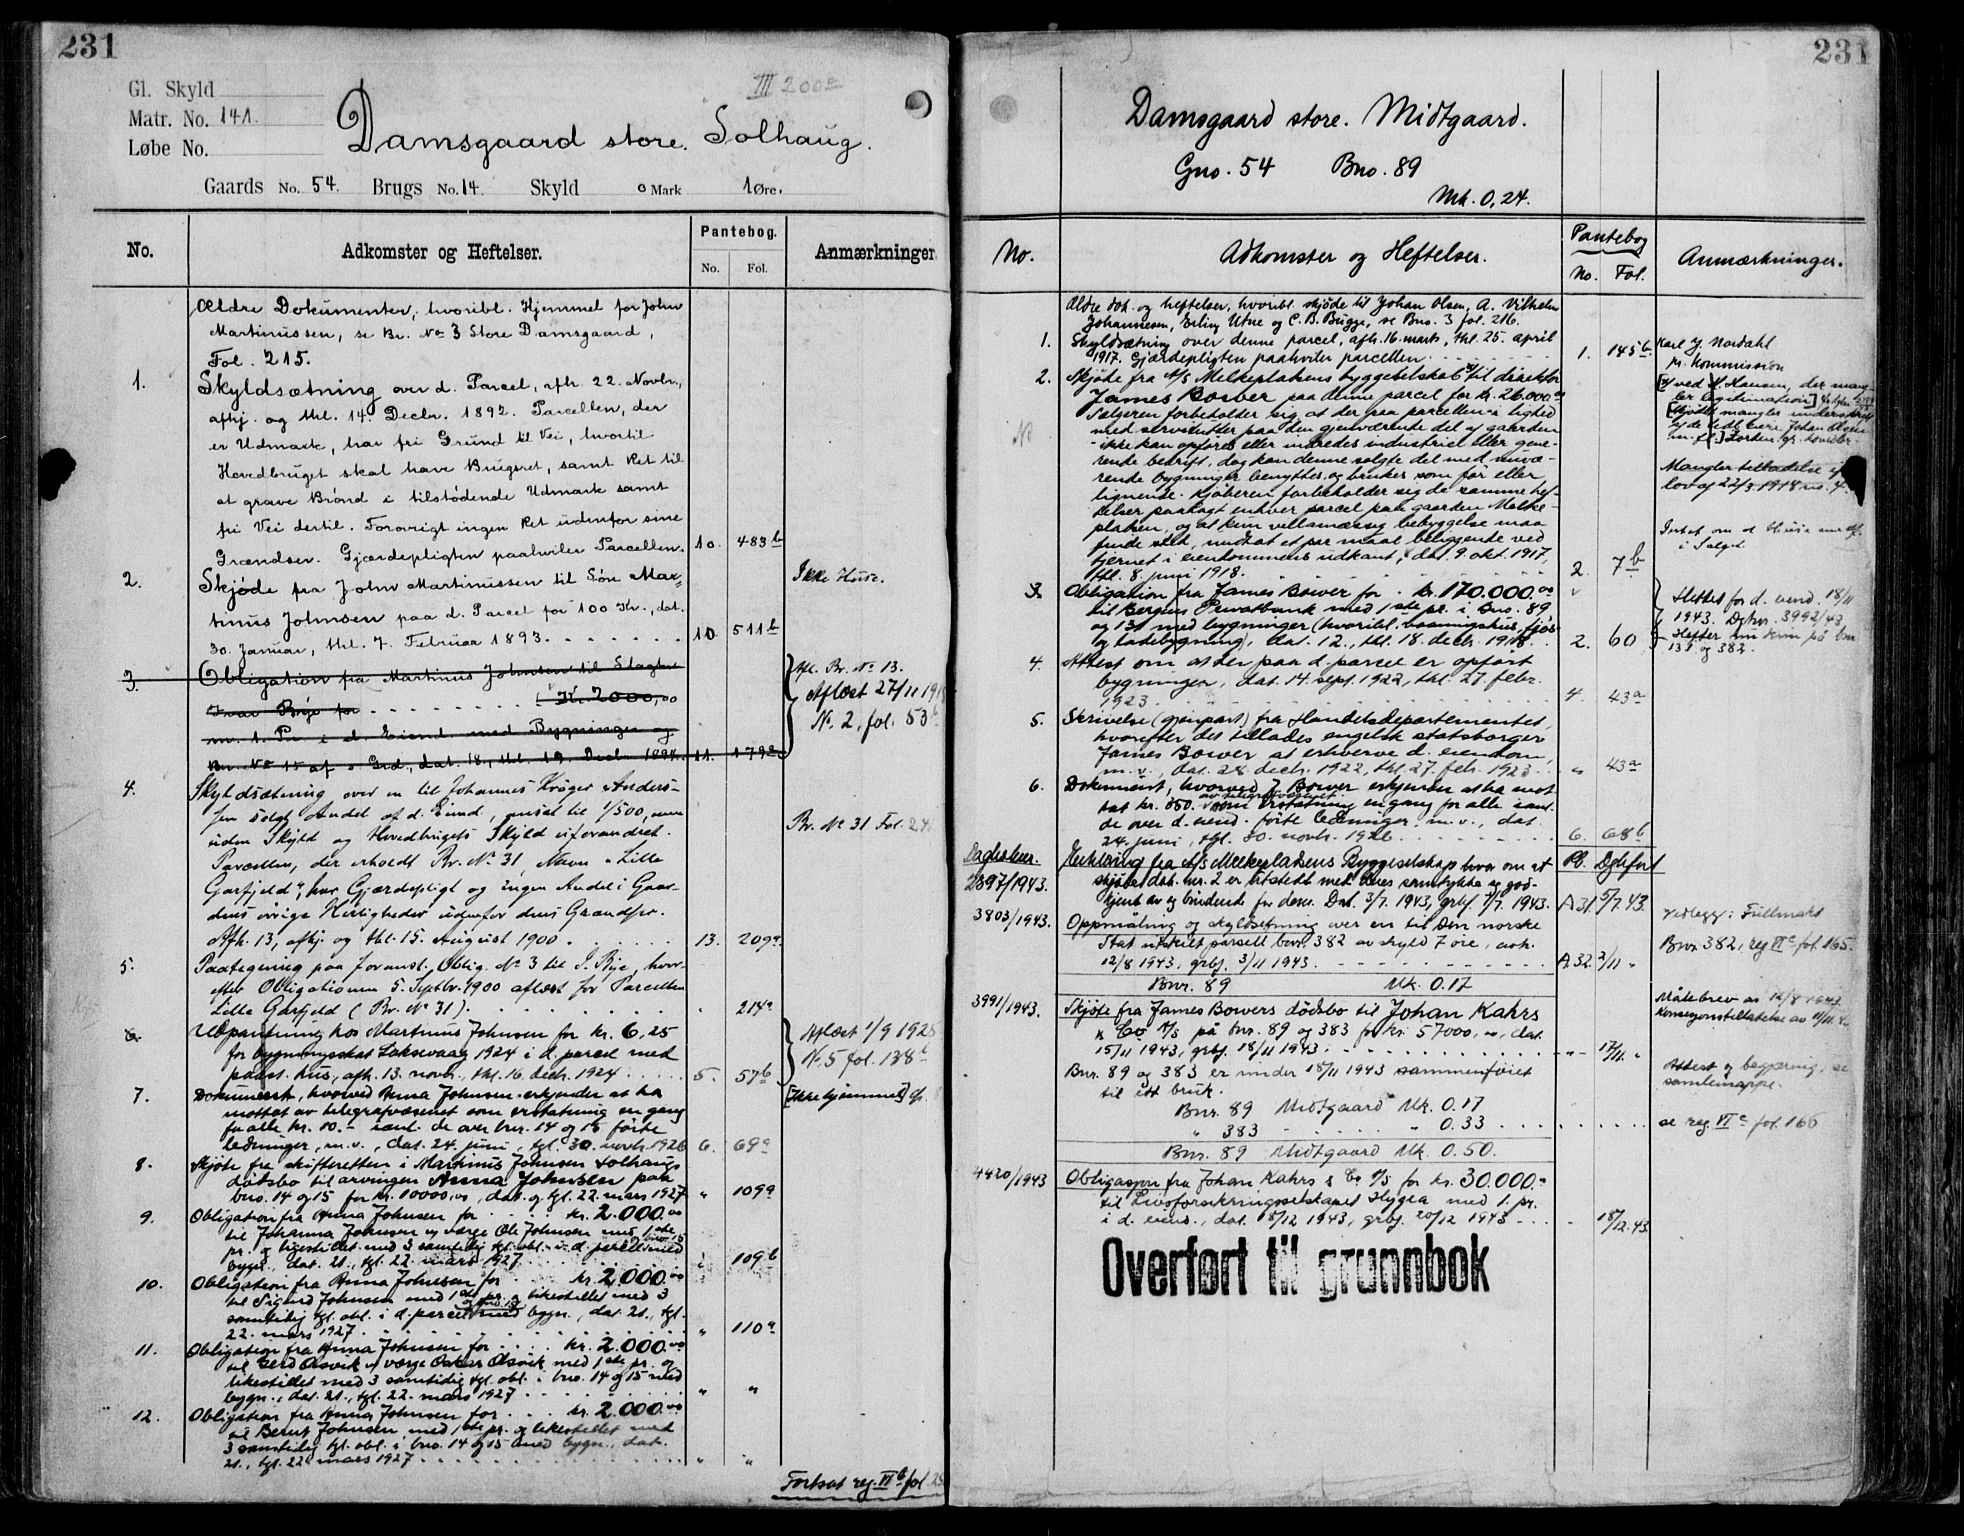 231
Gl. Skyld
Matr. No. 141.
Løbe No.
III 200a
Damsgaard store. Solhaug.
Gaards No. 54. Brugs No. 14. Skyld 0 Mark 1 Øre.
No.
Adkomster og Heftelser.
Pantebog.
No. Fol.
Anmærkninger
Ældre Dokumenter, hvoribl. Hjemmel for John
Martinussen, se Br. No 3 Store Damsgaard,
Fol. 215.
1. Skyldsætning over d. Parcel, afh. 22. Novbr.,
afhj. og thl. 14. Decbr. 1892. Parcellen, der
er Udmark, har fri Grund til Vei, hvortil
Hovedbruget skal have Brugsret, samt Ret til
at grave Brønd i tilstødende Udmark samt
fri Vei dertil. Forøvrigt ingen Ret udenfor sine
Grændser. Gjærdepligten paahviler Parcellen. 10. 483b
2. Skjøde fra John Martinussen til Søn Mar-
tinus Johnsen paa d. Parcel for 100 Kr., dat.
30. Januar, thl. 7. Februar 1893. 10 511b
Ikke Huse.
3. Obligation fra Martinus Johnsen til
Ivar Bøje for Kr. 2000,00
m. 1. Pr. i d. Eiend. med Bygninger og
Br. No 15 af s. Grd., dat. 18., thl. 19. Decbr. 1894. 11. 179a
Afl. Br. No 13.
Aflæst 27/11 19
No. 2, fol. 53
4. Skyldsætning over en til Johannes Krøger Anders-
sen solgt Andel af d. Eiend., ansat til 1/500, men
uden Skyld og Hovedbrugets Skyld uforandret.
Parcellen, der erholdt Br. No 31, Navn "Lille
Garfjeld", har Gjærdepligt og ingen Andel i Gaar-
dens øvrige Herligheder udenfor dens Grændser.
Afh. 13, afhj. og thl. 15. August 1900. 13. 209a
Br. No 31 Fol.
5. Paategning paa foranst. Oblig. No 3 til I. Bøje, hvor-
efter Obligationen 5. Septbr. 1900 aflæst for Parcellen
Lille Garfjeld (Br. No 31). 214a
6. Utpantning hos Martinus Johnsen for kr. 6,25
for bygningsskat Laksevaag 1924 i d. parcel med
paast. hus, afh. 13. novbr., thl. 16. decbr. 1924 5. 57b
Aflæst 1/9 192
N. 5 fol. 138
7. Dokument, hvorved Anna Johnsen erkjender at ha
mottat av telegrafvæsenet som erstatning en gang
for alle kr. 10.- i anl. de over bnr. 14 og 15 førte
ledninger, m.v., dat. 24. juni, tgl. 30. novbr. 1926 6. 69a
[Ikke hjemmel]
8. Skjøte fra skifteretten i Martinus Johnsen Solhaugs
dødsbo til arvingen Anna Johnsen paa
bno. 14 og 15 for kr. 10000,00, dat. og tgl. 22. mars 1927. " 109a
9. Obligation fra Anna Johnsen for kr. 2.000.00
til Johanna Johnsen v/ værge Ole Johnsen med 1ste
pr. og ligestillet med 3 samtidig tgl. obl. i d. parcel og bno. 15 med
bygn., dat. 21., tgl. 22. mars 1927. " 109b
10. Obligation fra Anna Johnsen for kr. 2.000.00
til Sigurd Johnsen med 1ste pr. og likestillet med 3
samtidig tgl. obl. i d. parcel og bno. 15 med bygn., dat. 21., tgl.
22. mars 1927. " 110a
11. Obligation fra Anna Johnsen for kr. 2.000.00
til Gerd Olsvik v/ værge Oskar Olsvik med 1ste pr. og
likestillet med 3 samtidig tgl. obl. i bno. 14 og 15 med
bygn., dat. 21., tgl. 22. mars 1927 " "
12. Obligation fra Anna Johnsen for kr. 2.000.00
til Bernt Johnsen med 1ste pr. og likestillet med
3 samtidig tgl. obl. i bno. 14 og 15 med bygn., dat.
21., tgl. 22. mars 1927 " "
Fortsat reg. VI b fol.
231
Damsgaard store. Midtgaard.
Gno. 54 Bno. 89
Mk. 0,24.
No.
Adkomster og Heftelser.
Pantebog
No. Fol.
Anmærkninger.
Ældre dok. og heftelser, hvoribl. skjøde til Johan Olsen, A. Vilhelm
Johannesen, Erling Utne og C. B. Brigge, se Bno. 3 fol. 216.
1. Skyldsætning over denne parcel, afh. 16. marts, thl. 25. april
1917. Gjærdepligten paahviler parcellen 1. 145b
2. Skjøde fra A/S Melkeplatsens byggeselskab til direktør
James Bower paa denne parcel for kr. 26.000.00
Sælgeren forbeholder sig, at der paa parcellen i lighed
med servitutter paa den gjenværende del af gaarden
ikke kan opføres eller indredes industriel eller gene-
rende bedrift, dog kan denne solgte del med nuvæ-
rende bygninger benyttes og brukes som før eller
lignende. Kjøberen forbeholder sig de samme hef-
telser paalagt enhver parcel paa gaarden Melke-
platsen, og at kun villamæssig bebyggelse maa
finde sted, undtat et par maal beliggende ved
tjernet i eiendommens udkant, dat. 9. okt. 1917,
thl. 8. juni 1918. 2. 7b
Karl J. Nordahl
pr. kommission
[ved H. Hansen, der mang-
ler legitimation]
[Skjødet mangler underskrift
af de tidl. eiere Johan Olsen
m. fl.]
Mangler tilladelse if.
lov af 22/3 1918 no. 4.
Intet om d. Huse medf.
i Salget.
3. Obligation fra James Bower for kr. 170.000.00
til Bergens Privatbank med 1ste pr. i Bno. 89
og 131 med bygninger (hvoribl. vaaningshus, fjøs
og ladebygning), dat. 12., thl. 18. decbr. 1918. 2. 60
Slettet for d. eiend. 18/11
1943. Dgbnr. 3992/43
Hefter nu kun på bnr.
131 og 382.
4. Attest om at der paa d. parcel er opført
bygninger, dat. 14. sept. 1922, thl. 27. febr.
1923 4. 43a
5. Skrivelse (gjenpart) fra Handelsdepartementet,
hvorefter det tillades engelsk statsborger
James Bower at erhverve d. eiendom,
m.v., dat. 28. decbr. 1922, thl. 27. febr. 1923 " 43a
6. Dokument, hvorved J. Bower erkjender at ha mot-
tat kr. 350.- av telegrafvæsenet som erstatning en gang for alle i anl.
de over d. eiend. førte ledninger, m.v., dat.
24. juni, tgl. 30. novbr. 1926. 6. 68b
Dagboknr. Pb. Dgbført
2397/1943. Erklæring fra A/S Melkeplatsens Byggeselskap hvor om at
skjøtet dok. nr. 2 er utstedt med deres samtykke og god-
kjent av og bindende for disse. Dat. 3/7. 1943, grbf. 7/7. 1943. A 31. 5/7. 43.
Vedlegg: Fullmakt
3803/1943. Oppmåling og skyldsetning over en til Den norske
Stat utskilt parsell bnr. 382 av skyld 7 øre, avh.
12/8 1943, grbf. 3/11 1943. A 32 2/11 "
Bnr. 382, reg VI c fol. 165.
Bnr. 89 Mk. 0.17
3991/1943. Skjøte fra James Bowers dødsbo til Johan Kahrs
& Co A/S på bnr. 89 og 383 for kr. 57000,00, dat.
15/11 1943, grbf. 18/11 1943 17/11. "
Målebrev av 12/8 1943.
Konsesjonstillatelse av
Bnr. 89 og 383 er under 18/11 1943 sammenføiet
til ett bruk.
Attest og begjæring, se
samlemappe.
Bnr. 89 Midtgaard Mk. 0.17
" 383 " 0.33
se reg VI c fol. 166
Bnr. 89 Midtgaard Mk. 0.50.
4420/1943 Obligasjon fra Johan Kahrs & Co A/S for kr. 30.000.-
til Livsforsikringsselskapet Hygea med 1. pr.
i d. eiend., dat. 15/12 1943, grbf. 20/12 1943 18/12. 43.
Overført til grunnbok